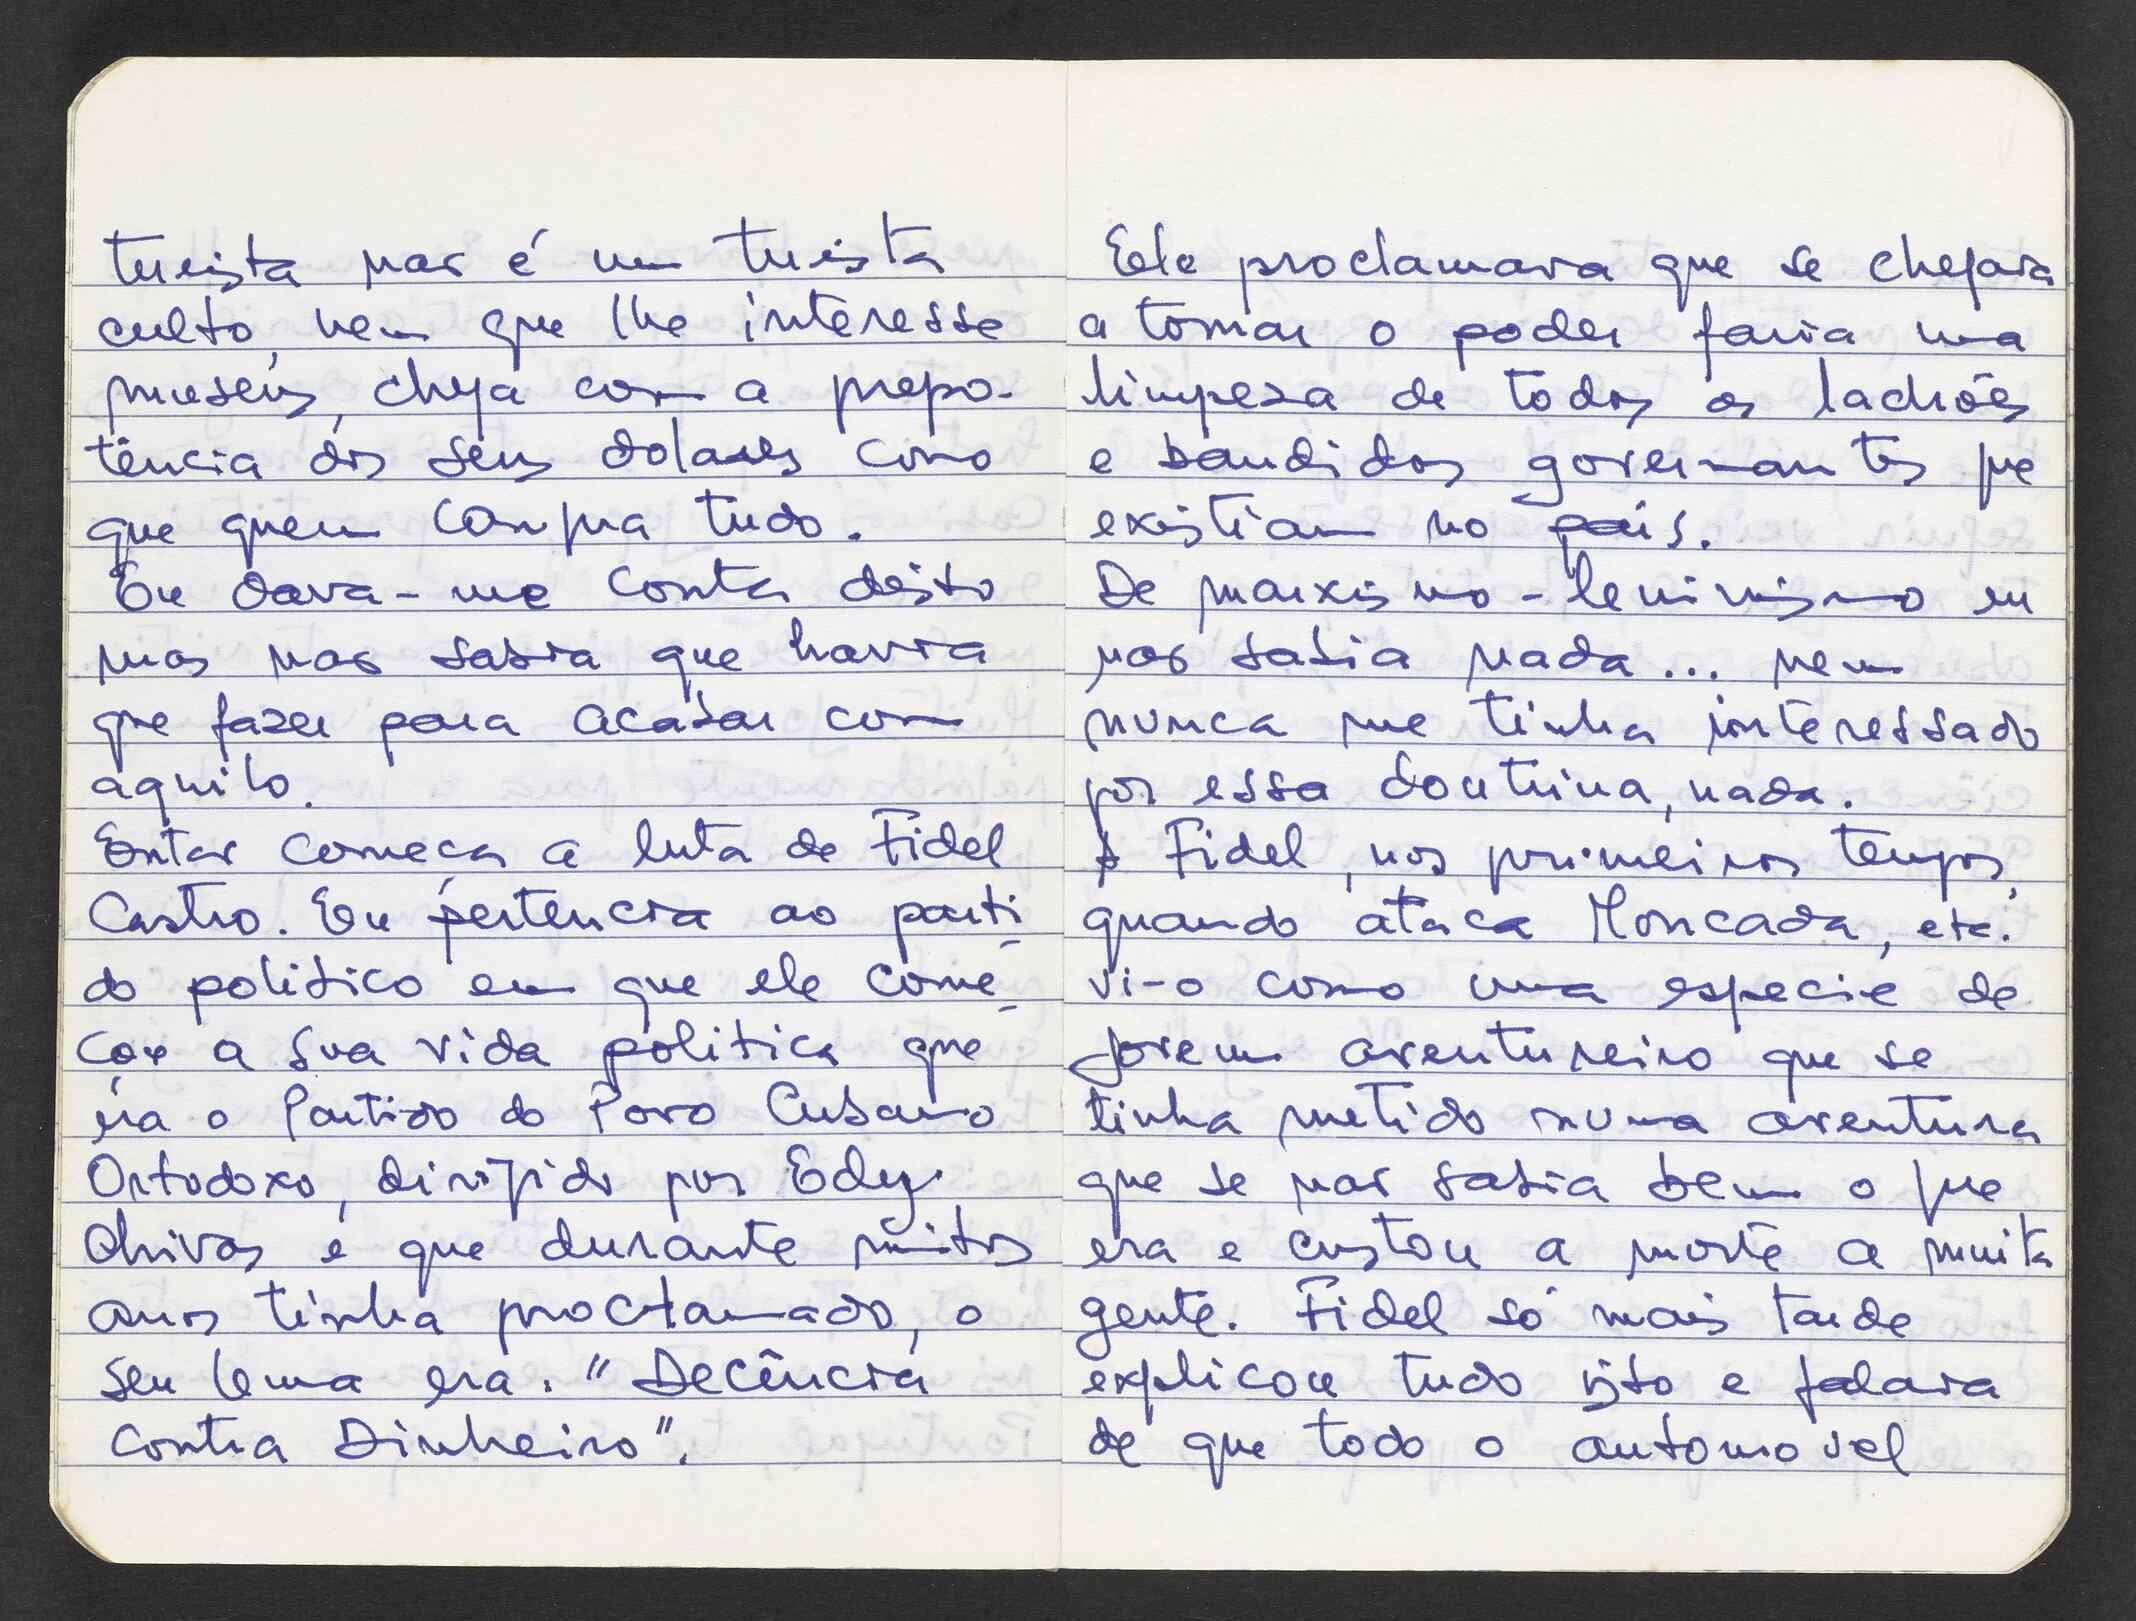 turista não é um turista
culto, nem que lhe interesse
museus, chega com a prepo-
tência dos seus dolares como
que quem compra tudo.
Eu dava-me conta disto
mas não sabia que havia
que fazer para acabar com
aquilo.
Então começa a luta de Fidel
Castro. Eu pertencia ao parti-
do politico em que ele come-
çou a sua vida politica que
era o Partido do Povo Cubano
Ortodoxo, dirigido por Edy
Chivas e que durante muitos
anos tinha proclamado, o
seu lema era. "Decência
contra Dinheiro".
Ele proclamava que se chegava
a tomar o poder faria uma
limpeza de todos os ladrões
e bandidos governantes que
existiam no país.
De marxismo-leninismo eu
não sabia nada... nem
nunca me tinha interessado
por essa doutrina, nada.
Fidel, nos primeiros tempos,
quando ataca Moncada, etc.
vi-o como uma especie de
jovem aventureiro que se
tinha metido numa aventura
que se não sabia bem o que
era e custou a morte a muita
gente. Fidel só mais tarde
explicou tudo isto e falava
de que todo o automovel